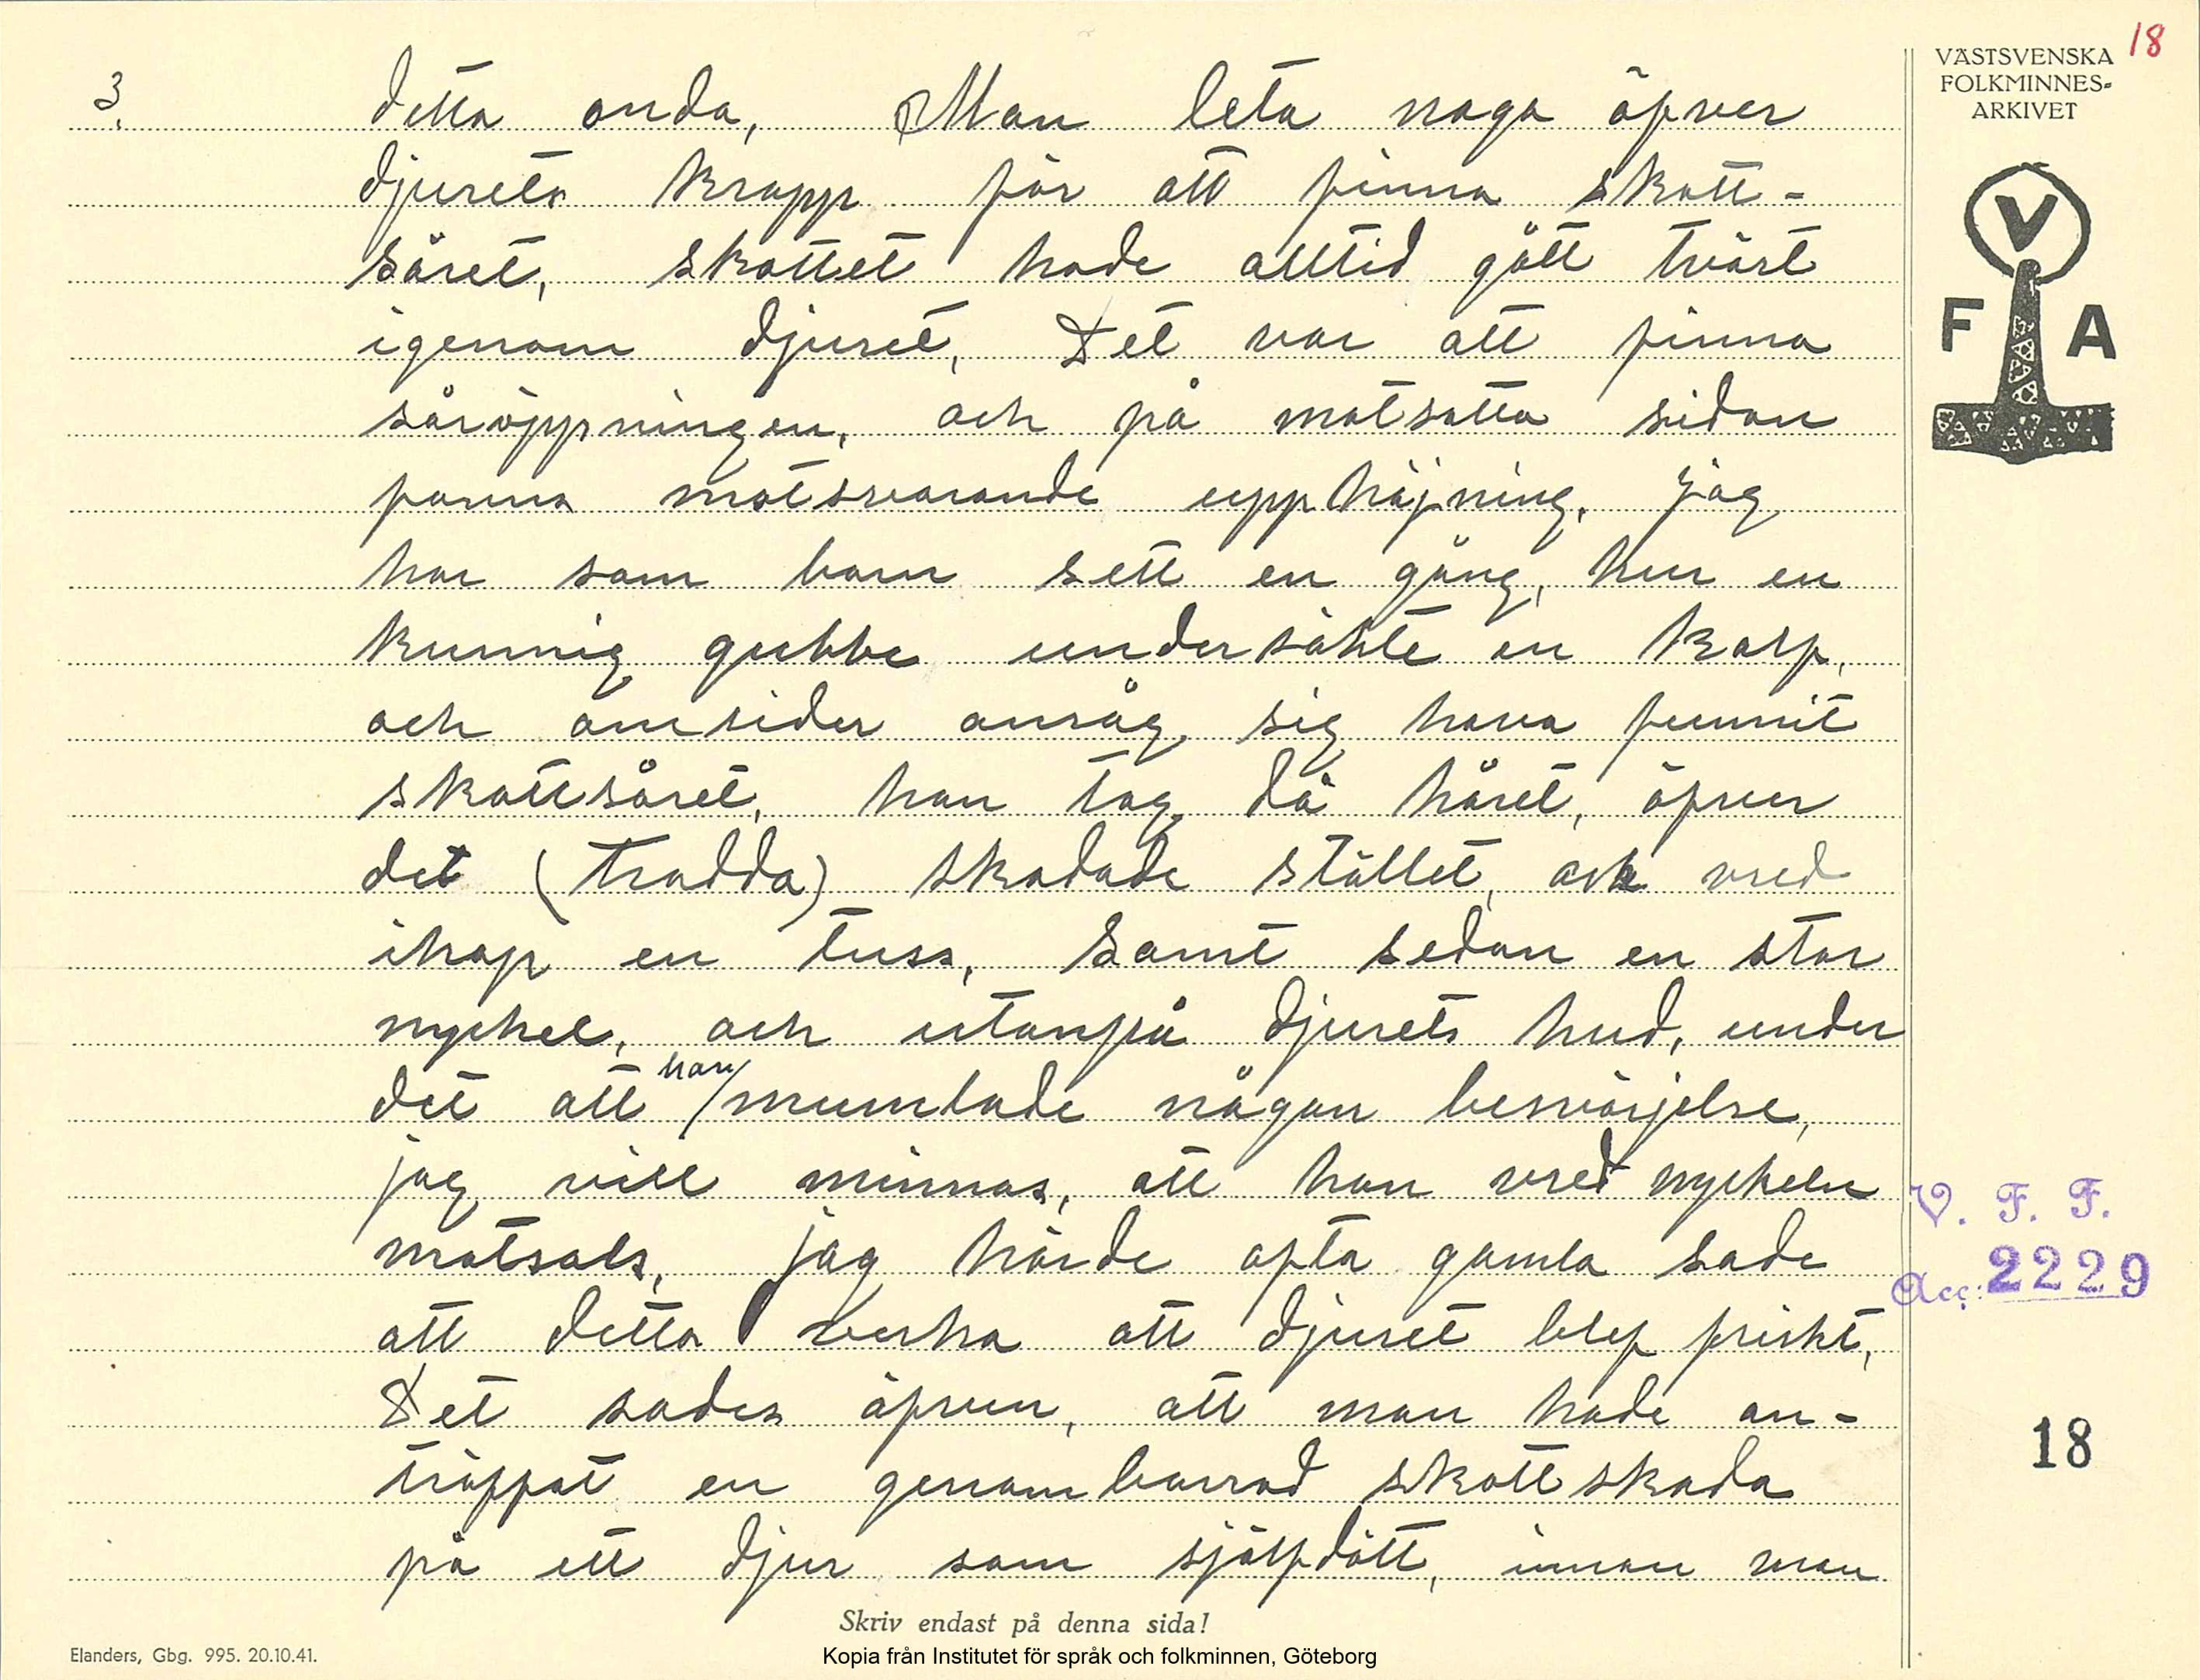 18
VÄSTSVENSKA
FOLKMINNES-
ARKIVET
V
F A
3.
detta onda, Man leta noga öfver
djurets kropp för att finna skott-
såret, skottet hade alltid gått tvärt
igenom djuret, Det var att finna
såröppningen, och på motsatta sidan
fanns motsvarande upphöjning. Jag
har som barn sett en gång, hur en
kunnig gubbe undersökte en kalf,
och omsider ansåg sig hava funnit
skottsåret, han tog då håret, öfver
det (trodda) skadade stället, och vred
ihop en tuss, samt sedan en stor
nyckel, och utanpå djurets hud, under
det att han/ mumlade någon besvärjelse,
jag vill minnas, att han vred nyckeln
motsols, jag hörde ofta gamla sade
att detta verka att djuret blef friskt,
Det sades äfven, att man hade an-
träffat en genomborrad skottskada
på ett djur som självdött, innan man
V. F. F.
Acc: 2229
18
Skriv endast på denna sida!
Elanders, Gbg. 995. 20.10.41.
Kopia från Institutet för språk och folkminnen, Göteborg